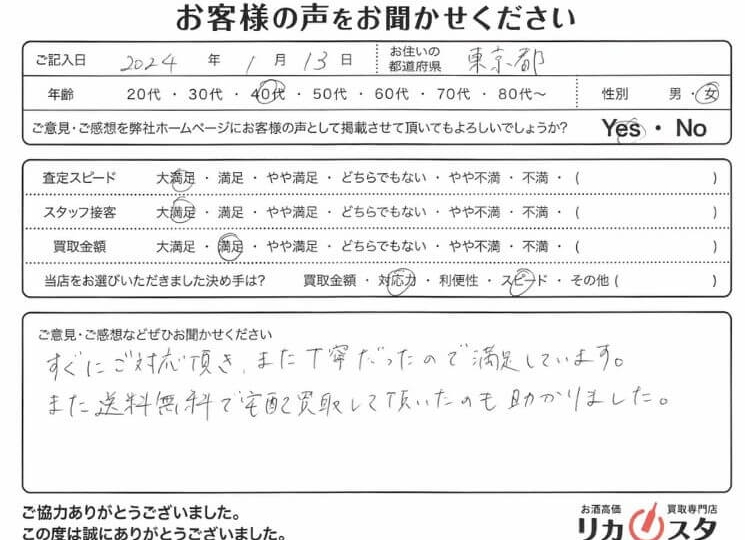 お客様の声をお聞かせください
ご記入日 2024 年 1 月 13 日 お住いの都道府県 東京都
年齢 20代・30代・40代・50代・60代・70代・80代～ 性別 男・女
ご意見・ご感想を弊社ホームページにお客様の声として掲載させて頂いてもよろしいでしょうか? Yes・No
査定スピード 大満足・満足・やや満足・どちらでもない・やや不満・不満・( )
スタッフ接客 大満足・満足・やや満足・どちらでもない・やや不満・不満・( )
買取金額 大満足・満足・やや満足・どちらでもない・やや不満・不満・( )
当店をお選びいただきました決め手は? 買取金額・対応力・利便性・スピード・その他( )
ご意見・ご感想などぜひお聞かせください
すぐにご対応頂き、また丁寧だったので満足しています。
また送料無料で宅配買取して頂いたのも助かりました。
ご協力ありがとうございました。
この度は誠にありがとうございました。
お酒高価 買取専門店
リカスタ